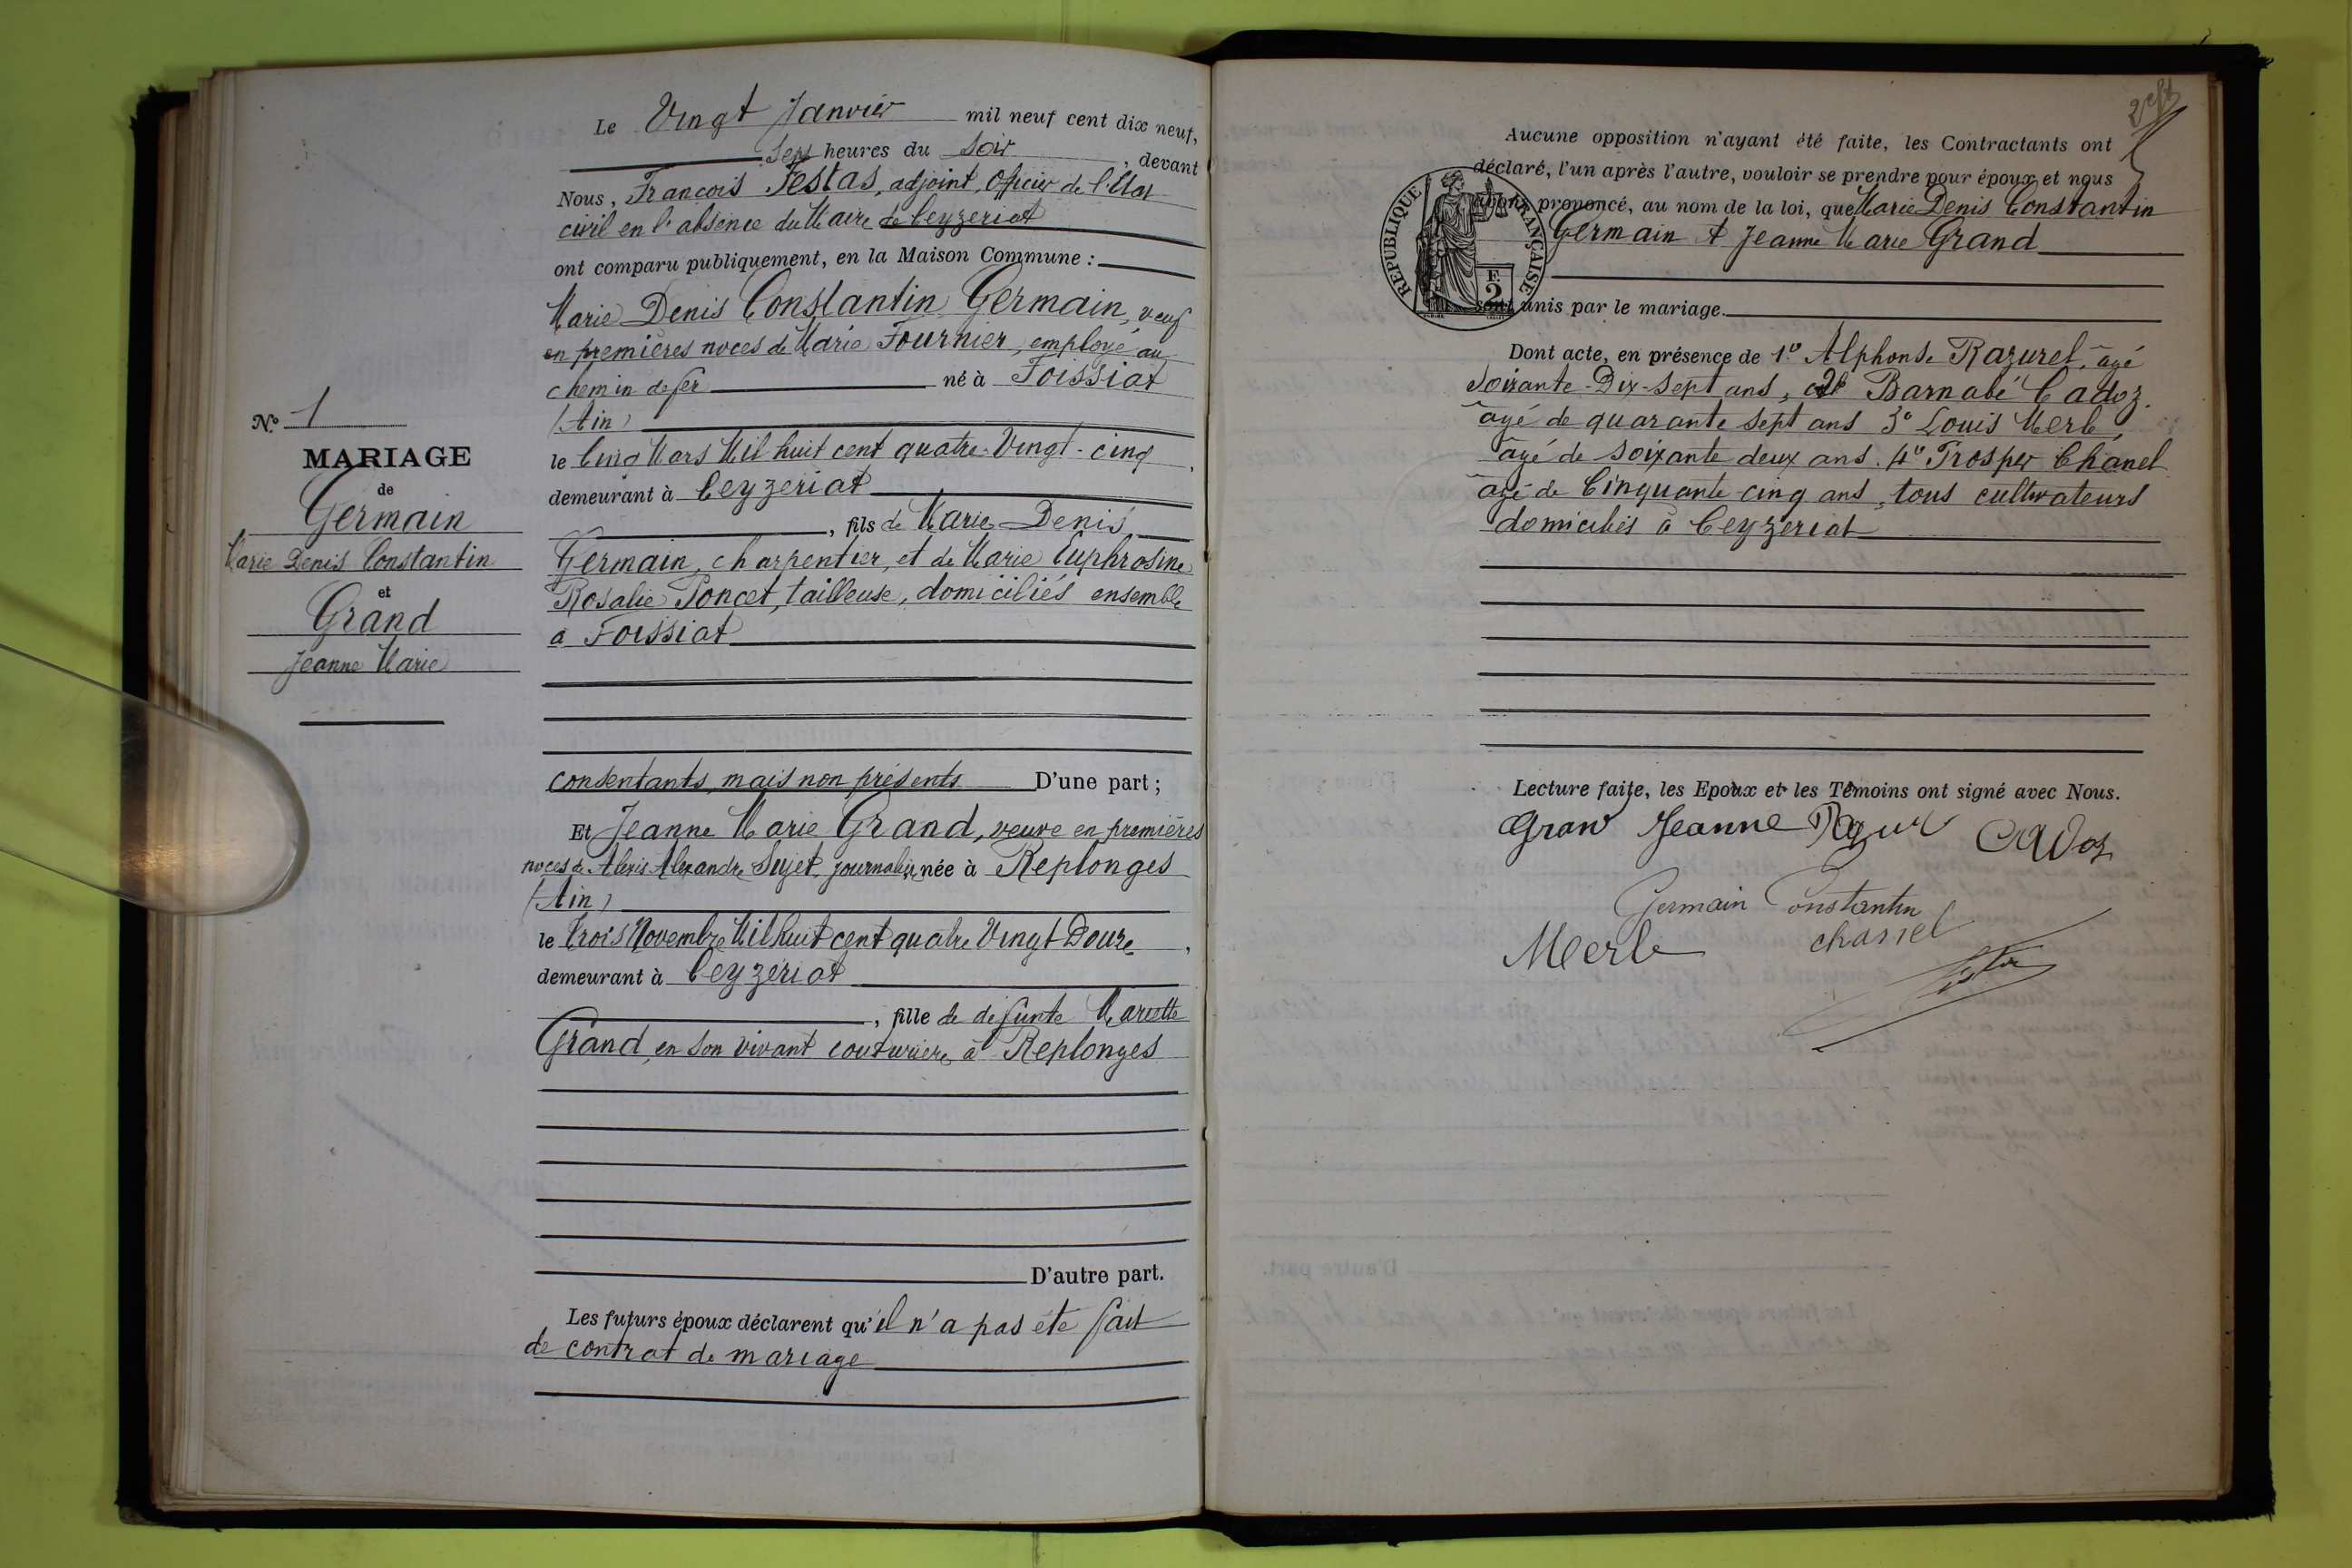 N.° 1
MARIAGE
de
Germain
Marie Denis Constantin
et
Grand
Jeanne Marie
Le Vingt Janvier mil neuf cent dix neuf,
Sept heures du Soir, devant
Nous, François Festas, adjoint, Officier de l'Etat
civil en l'absence du Maire de Ceyzeriat
ont comparu publiquement, en la Maison Commune :
Marie Denis Constantin Germain, veuf
en premières noces de Marie Fournier, employé au
chemin de fer né à Foissiat
(Ain)
le Cinq Mars Mil huit cent quatre-Vingt-cinq,
demeurant à Ceyzeriat
, fils de Marie Denis
Germain, charpentier, et de Marie Euphrosine
Rosalie Poncet, tailleuse, domiciliés ensemble
à Foissiat
consentants, mais non présents D'une part ;
Et Jeanne Marie Grand, veuve en premières
noces de Alexis Alexandre Sujet, journalière née à Replonges
(Ain)
le trois Novembre Mil huit cent quatre Vingt Douze,
demeurant à Ceyzeriat
, fille de defunte Mariette
Grand, en son vivant couturière à Replonges
D'autre part.
Les futurs époux déclarent qu'il n'a pas été fait
de contrat de mariage
Aucune opposition n'ayant été faite, les Contractants ont
déclaré, l'un après l'autre, vouloir se prendre pour époux et nous
avons prononcé, au nom de la loi, que Marie Denis Constantin
Germain et Jeanne Marie Grand
RÉPUBLIQUE FRANÇAISE
E
2
sont unis par le mariage.
Dont acte, en présence de 1° Alphonse Razurel, âgé
Soixante-Dix-sept ans, 2° Barnabé Cadoz
âgé de quarante sept ans 3° Louis Merle,
âgé de soixante deux ans. 4° Prosper Chanel
âgé de Cinquante-cinq ans, tous cultivateurs
domiciliés à Ceyzeriat
Lecture faite, les Epoux et les Témoins ont signé avec Nous.
Grand Jeanne Cadoz
Germain Constantin
Merle chanel